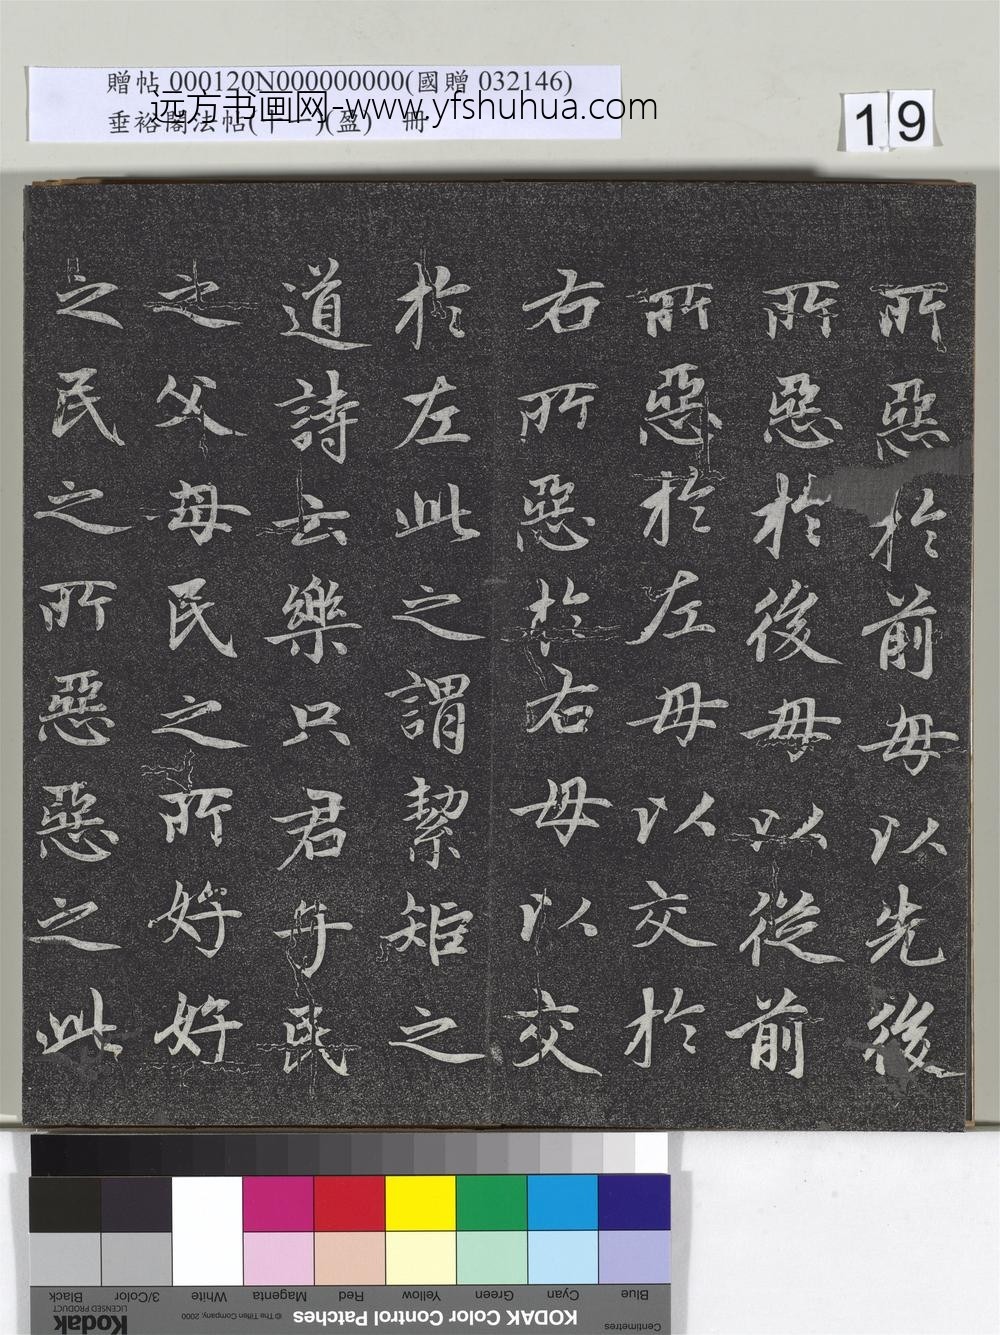 贈帖 000120N000000000(國贈 032146)
远方书画网-www.yfshuhua.com
垂裕閣法帖(十一)(盈) 冊
19
所惡於前毋以先後
所惡於後毋以從前
所惡於左毋以交於
右所惡於右毋以交
於左此之謂絜矩之
道詩云樂只君子民
之父母民之所好好
之民之所惡惡之此
Blue
Cyan
Green
Yellow
Red
Magenta
White
3/Color
Black
Centimetres
KODAK Color Control Patches
© The Tiffen Company, 2000
Kodak
LICENSED PRODUCT